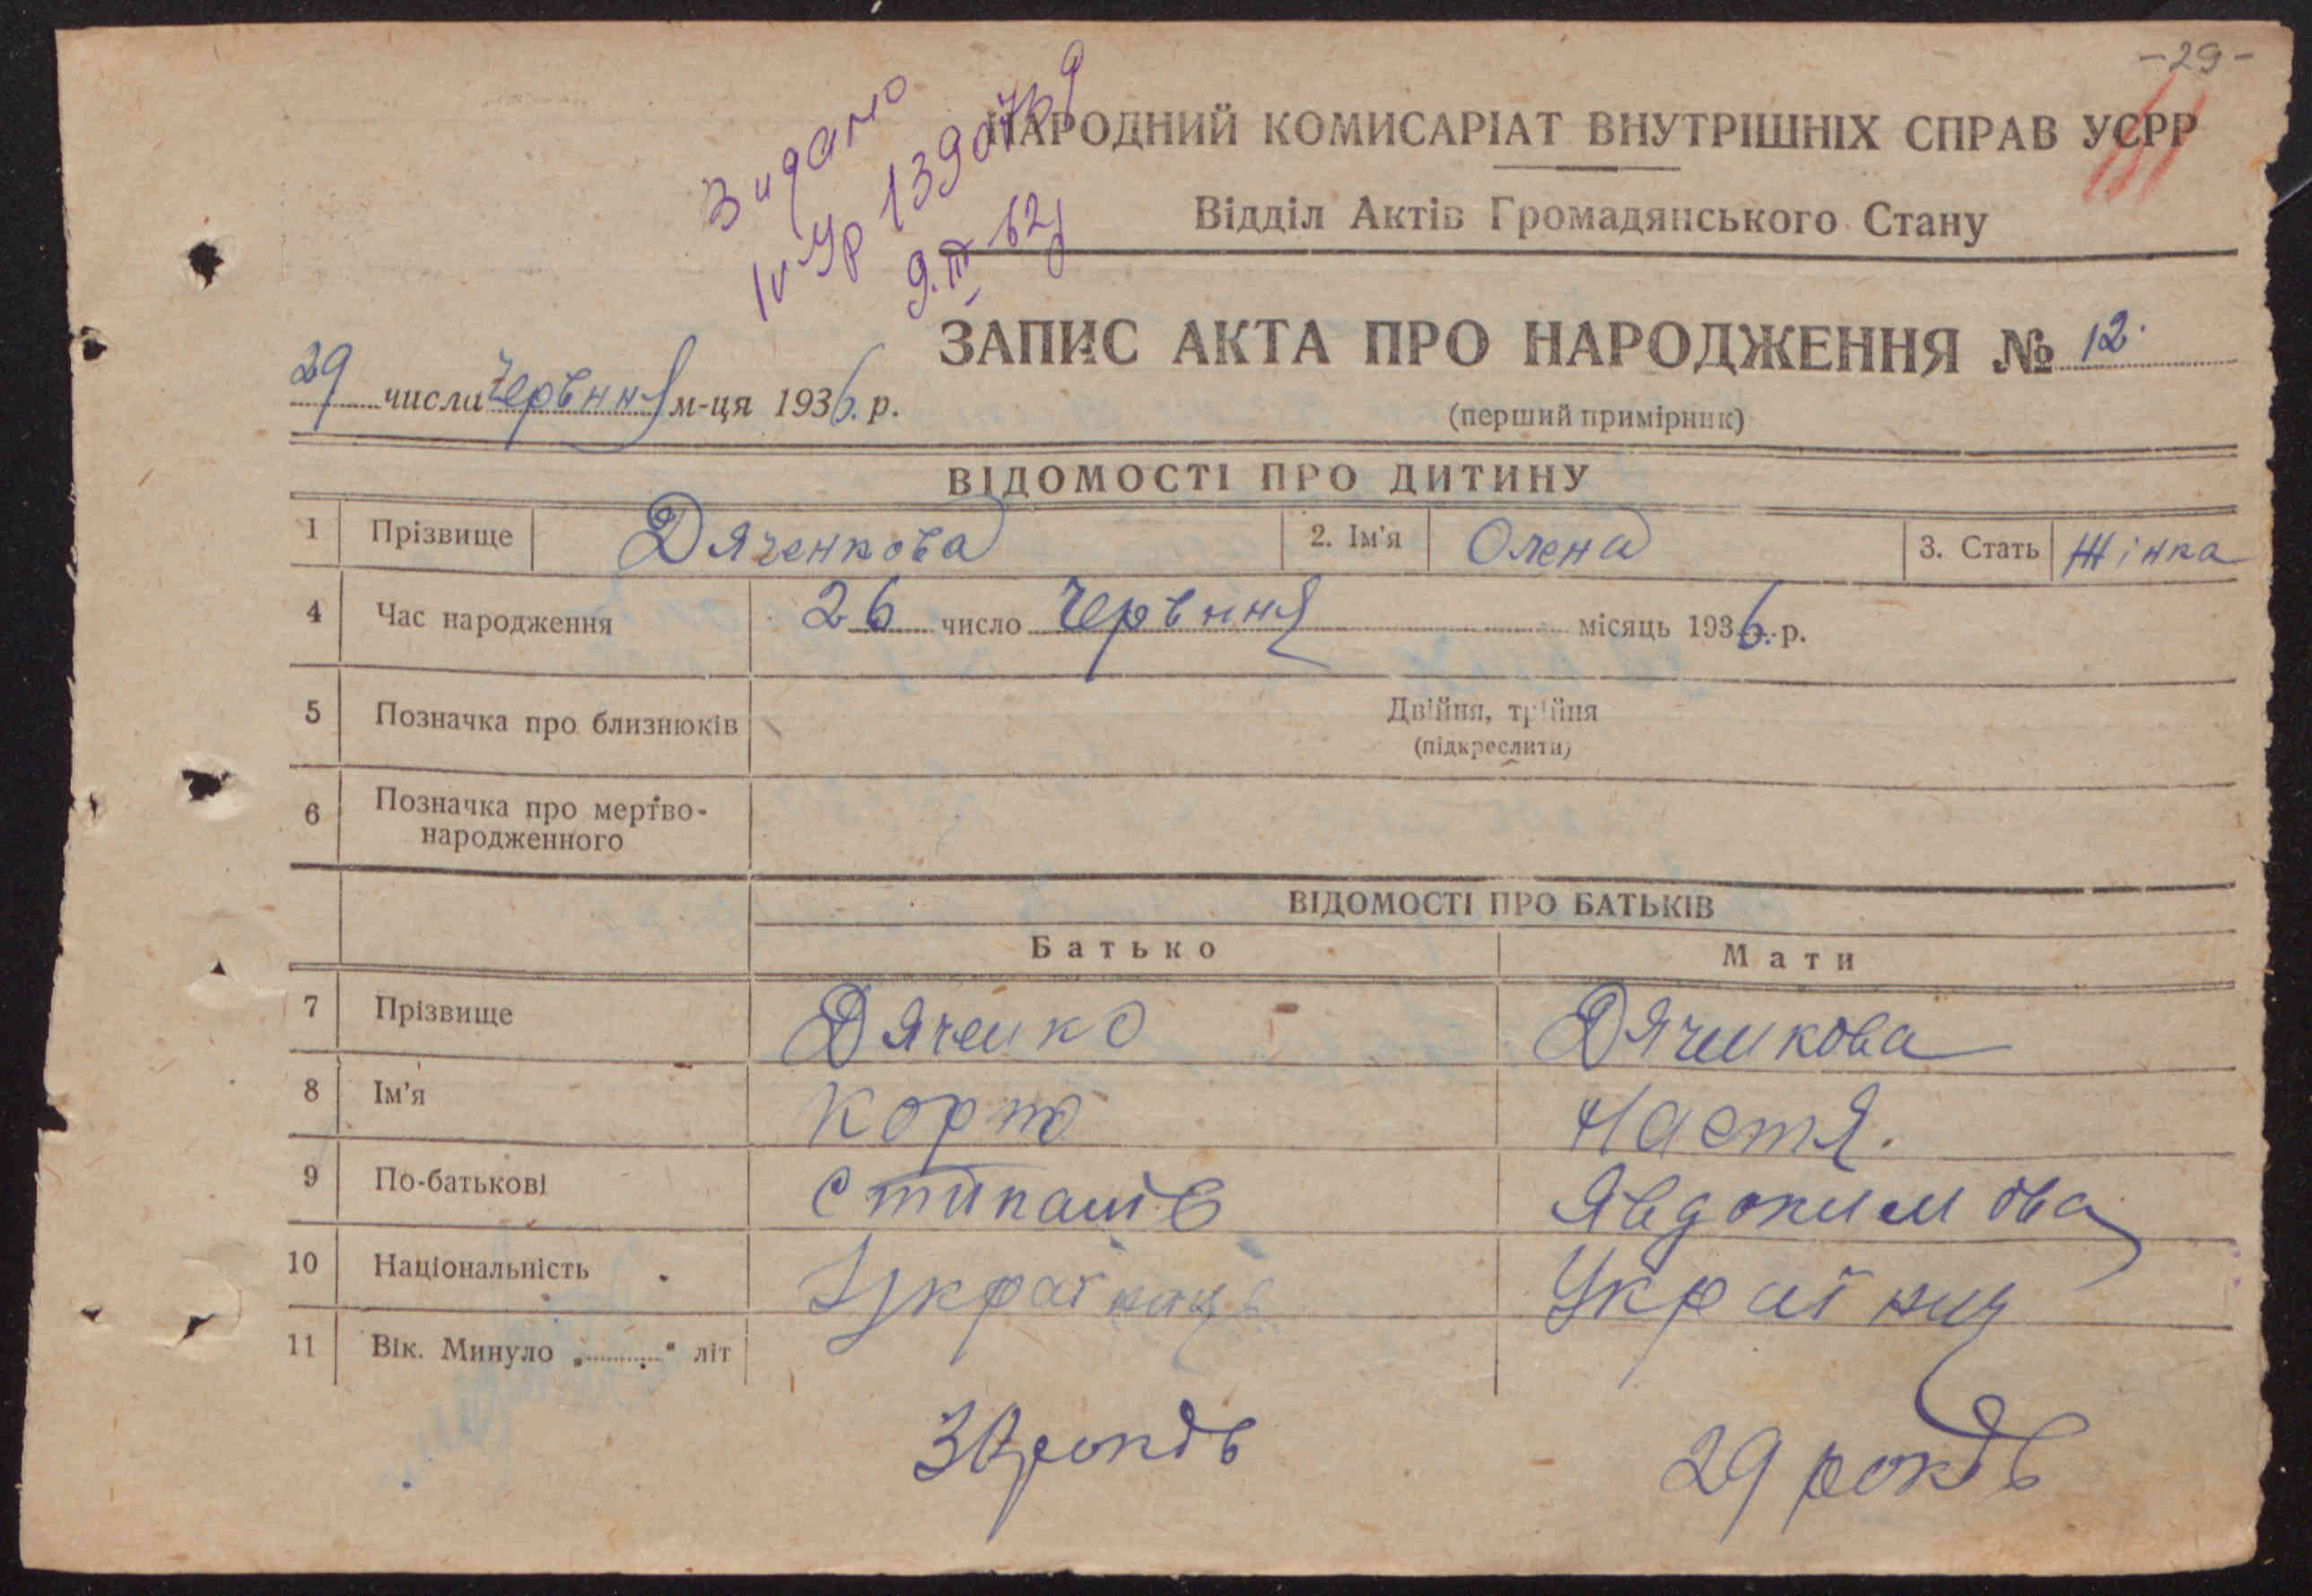 -29-
НАРОДНИЙ КОМИСАРІАТ ВНУТРІШНІХ СПРАВ УСРР
Відділ Актів Громадянського Стану
Видано
139076
9.III 62
ЗАПИС АКТА ПРО НАРОДЖЕННЯ № 12.
29 числа Червння м-ця 1936.р.
(перший примірник)
ВІДОМОСТІ ПРО ДИТИНУ
1 Прізвище Дяченкова 2. Ім'я Олена 3. Стать Жінка
4 Час народження 26 число Червння місяць 1936.р.
5 Позначка про близнюків Двійня, трійня
(підкреслити)
6 Позначка про мертво-
народженного
ВІДОМОСТІ ПРО БАТЬКІВ
Батько Мати
7 Прізвище Дяченко Дяченкова
8 Ім'я Настя.
9 По-батькові Явдокимова
10 Національність
11 Вік. Минуло „............" літ
років 29 років